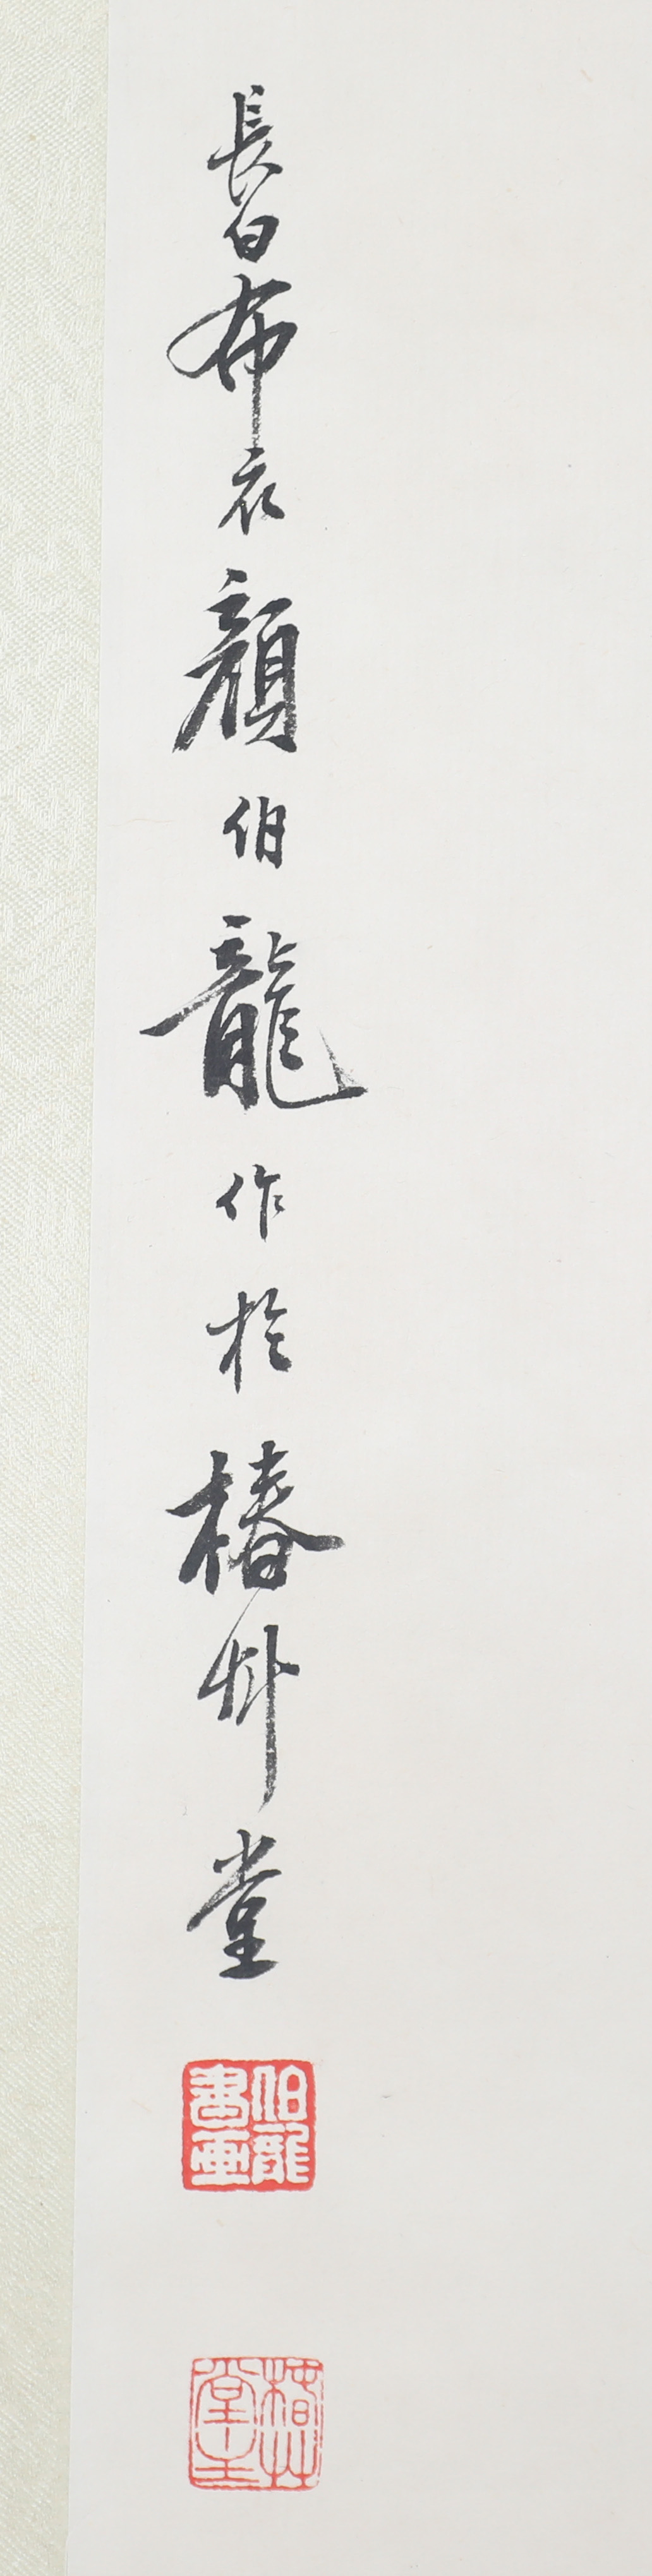 長白布衣顏伯龍作於椿艸堂
伯龍書畫
椿艸堂主